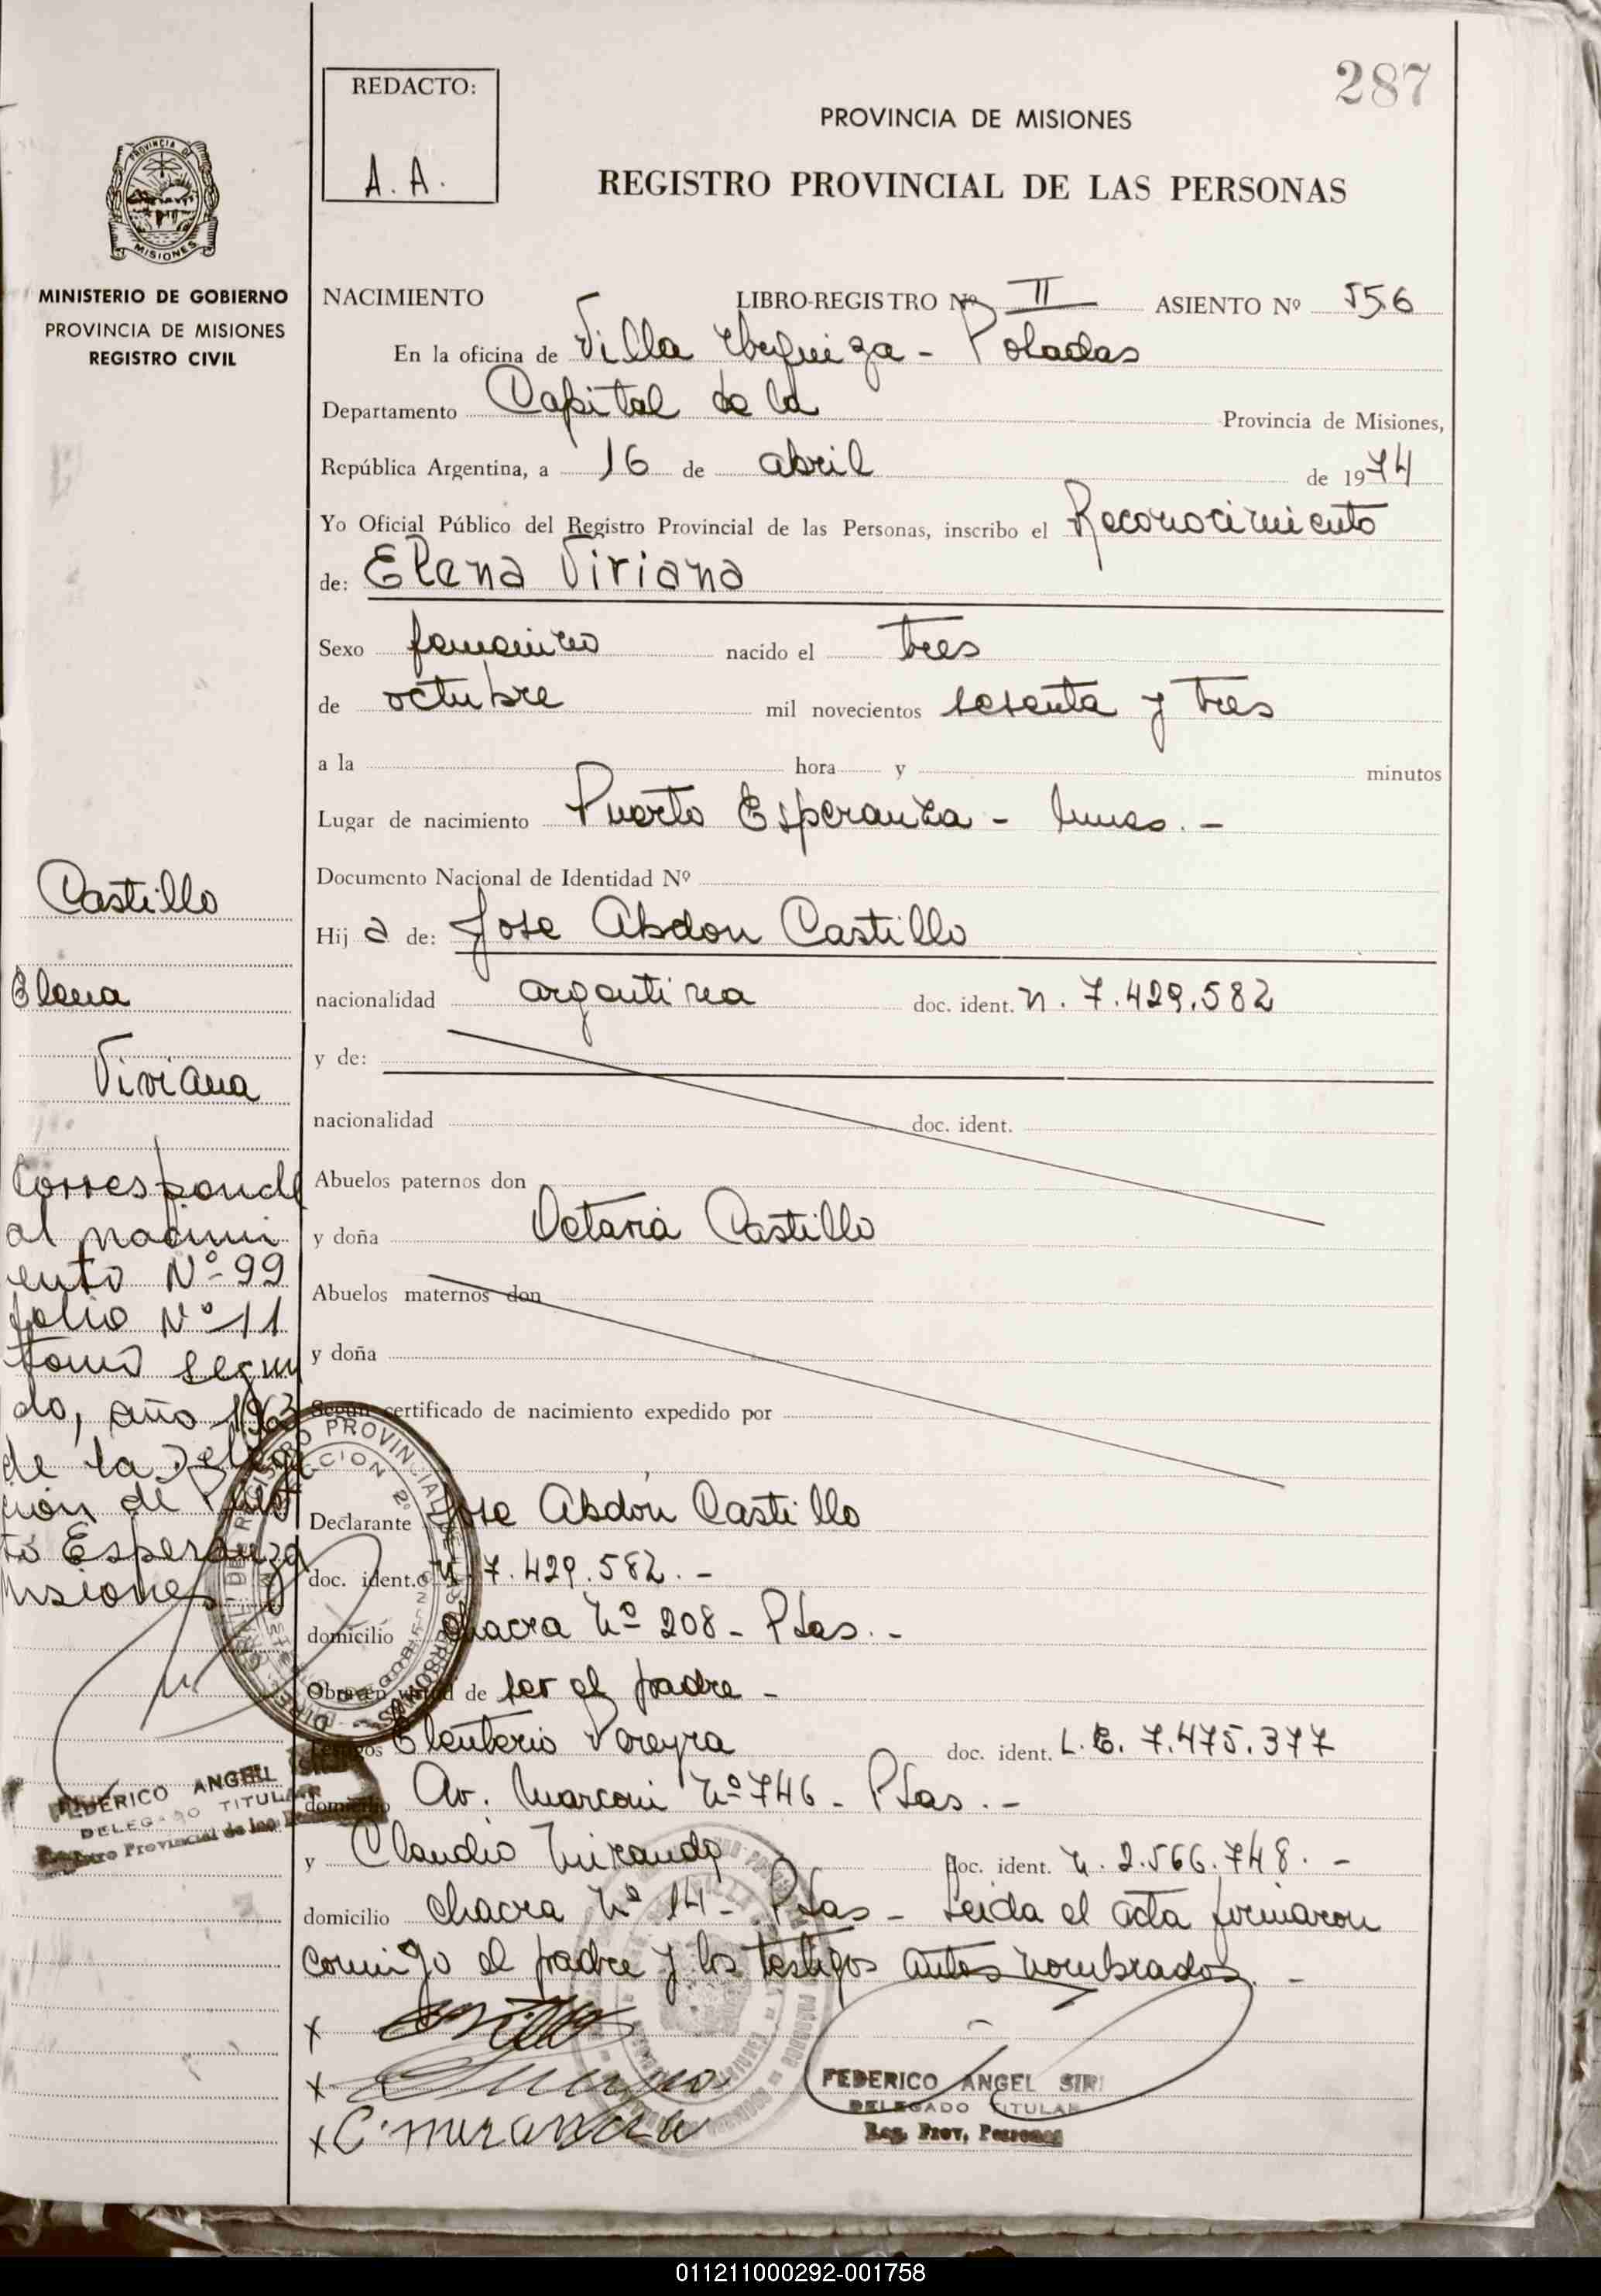 287
REDACTO:
A. A.
PROVINCIA DE MISIONES
REGISTRO PROVINCIAL DE LAS PERSONAS
PROVINCIA DE
MISIONES
MINISTERIO DE GOBIERNO
PROVINCIA DE MISIONES
REGISTRO CIVIL
NACIMIENTO LIBRO-REGISTRO Nº II ASIENTO Nº 556
En la oficina de Villa Urquiza - Posadas
Departamento Capital de la Provincia de Misiones,
República Argentina, a 16 de abril de 1974
Yo Oficial Público del Registro Provincial de las Personas, inscribo el Reconocimiento
de: Elena Viviana
Sexo femenino nacido el tres
de octubre mil novecientos sesenta y tres
a la hora y minutos
Lugar de nacimiento Puerto Esperanza - Mnes. -
Documento Nacional de Identidad Nº
Hij a de: Jose Abdon Castillo
nacionalidad argentina doc. ident. M. 7.429.582
y de:
nacionalidad doc. ident.
Abuelos paternos don
y doña Octavia Castillo
Abuelos maternos don
y doña
Según certificado de nacimiento expedido por
Declarante Jose Abdón Castillo
doc. ident. M. 7.429.582. -
domicilio chacra Nº 208 - Pdas. -
Obra en virtud de ser el padre -
Testigos Eleuterio Pereyra doc. ident. L. E. 7.475.377
domicilio Av. Marconi Nº 746 - Pdas. -
y Claudio Miranda doc. ident. M. 2.566.748. -
domicilio chacra Nº 14 - Pdas - Leida el acta firmaron
conmigo el padre y los testigos antes nombrados. -
x
x
x C. miranda
FEDERICO ANGEL SIRI
DELEGADO TITULAR
Reg. Prov. Personas
Castillo
Elena
Viviana
Corresponde
al nacimi
ento Nº 99
folio Nº 11
tomo segun
do, año 1963
de la Delega
ción de Puer
to Esperanza
Misiones.
FEDERICO ANGEL SIRI
DELEGADO TITULAR
Registro Provincial de las Personas
011211000292-001758